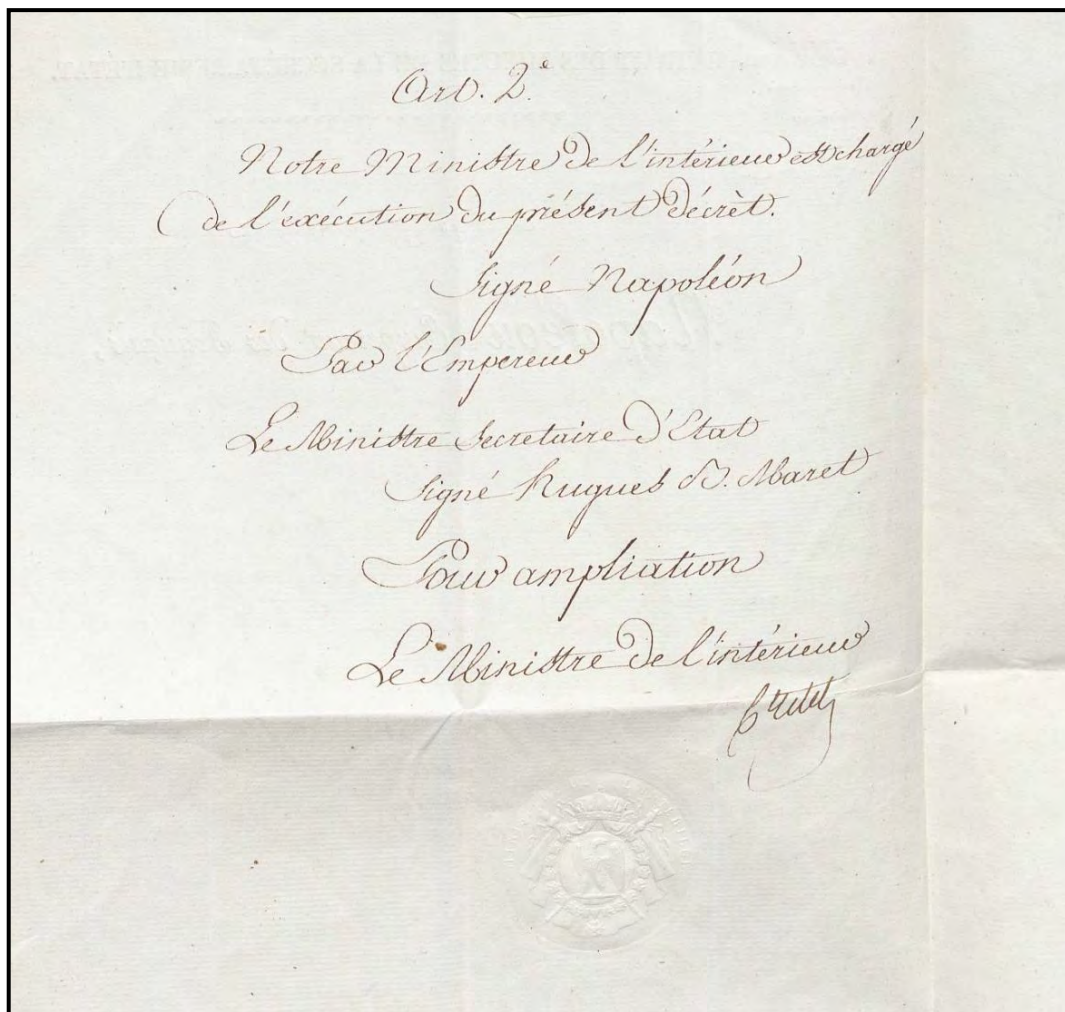 Art. 2.e
Notre Ministre de l'intérieur est chargé
de l'exécution du présent décrèt.
Signé Napoléon
Par l'Empereur
Le Ministre Secretaire d'Etat
Signé hugues B. Maret
Pour ampliation
Le Ministre de l'intérieur
Cretet